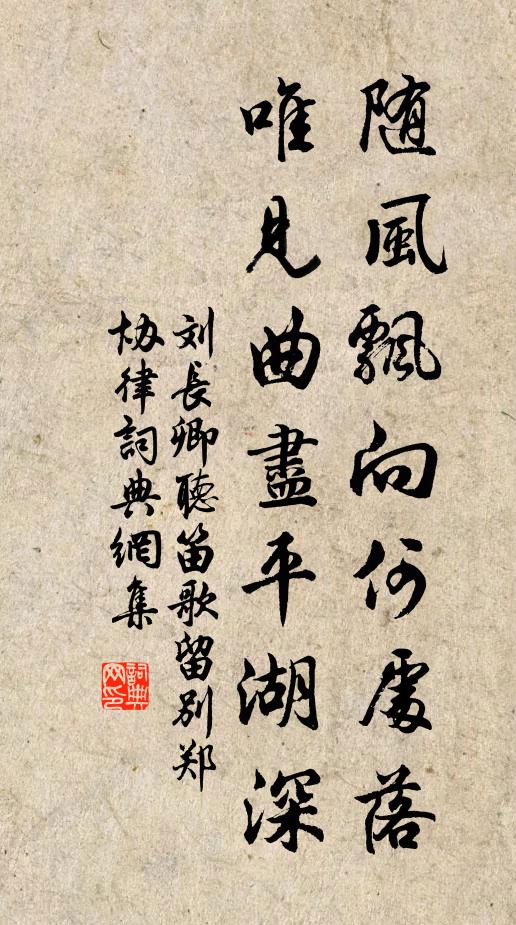 随風飄向何處落
唯見曲盡平湖深
刘長卿聽笛歌留別郑
协律詞典網集
詞典
网印